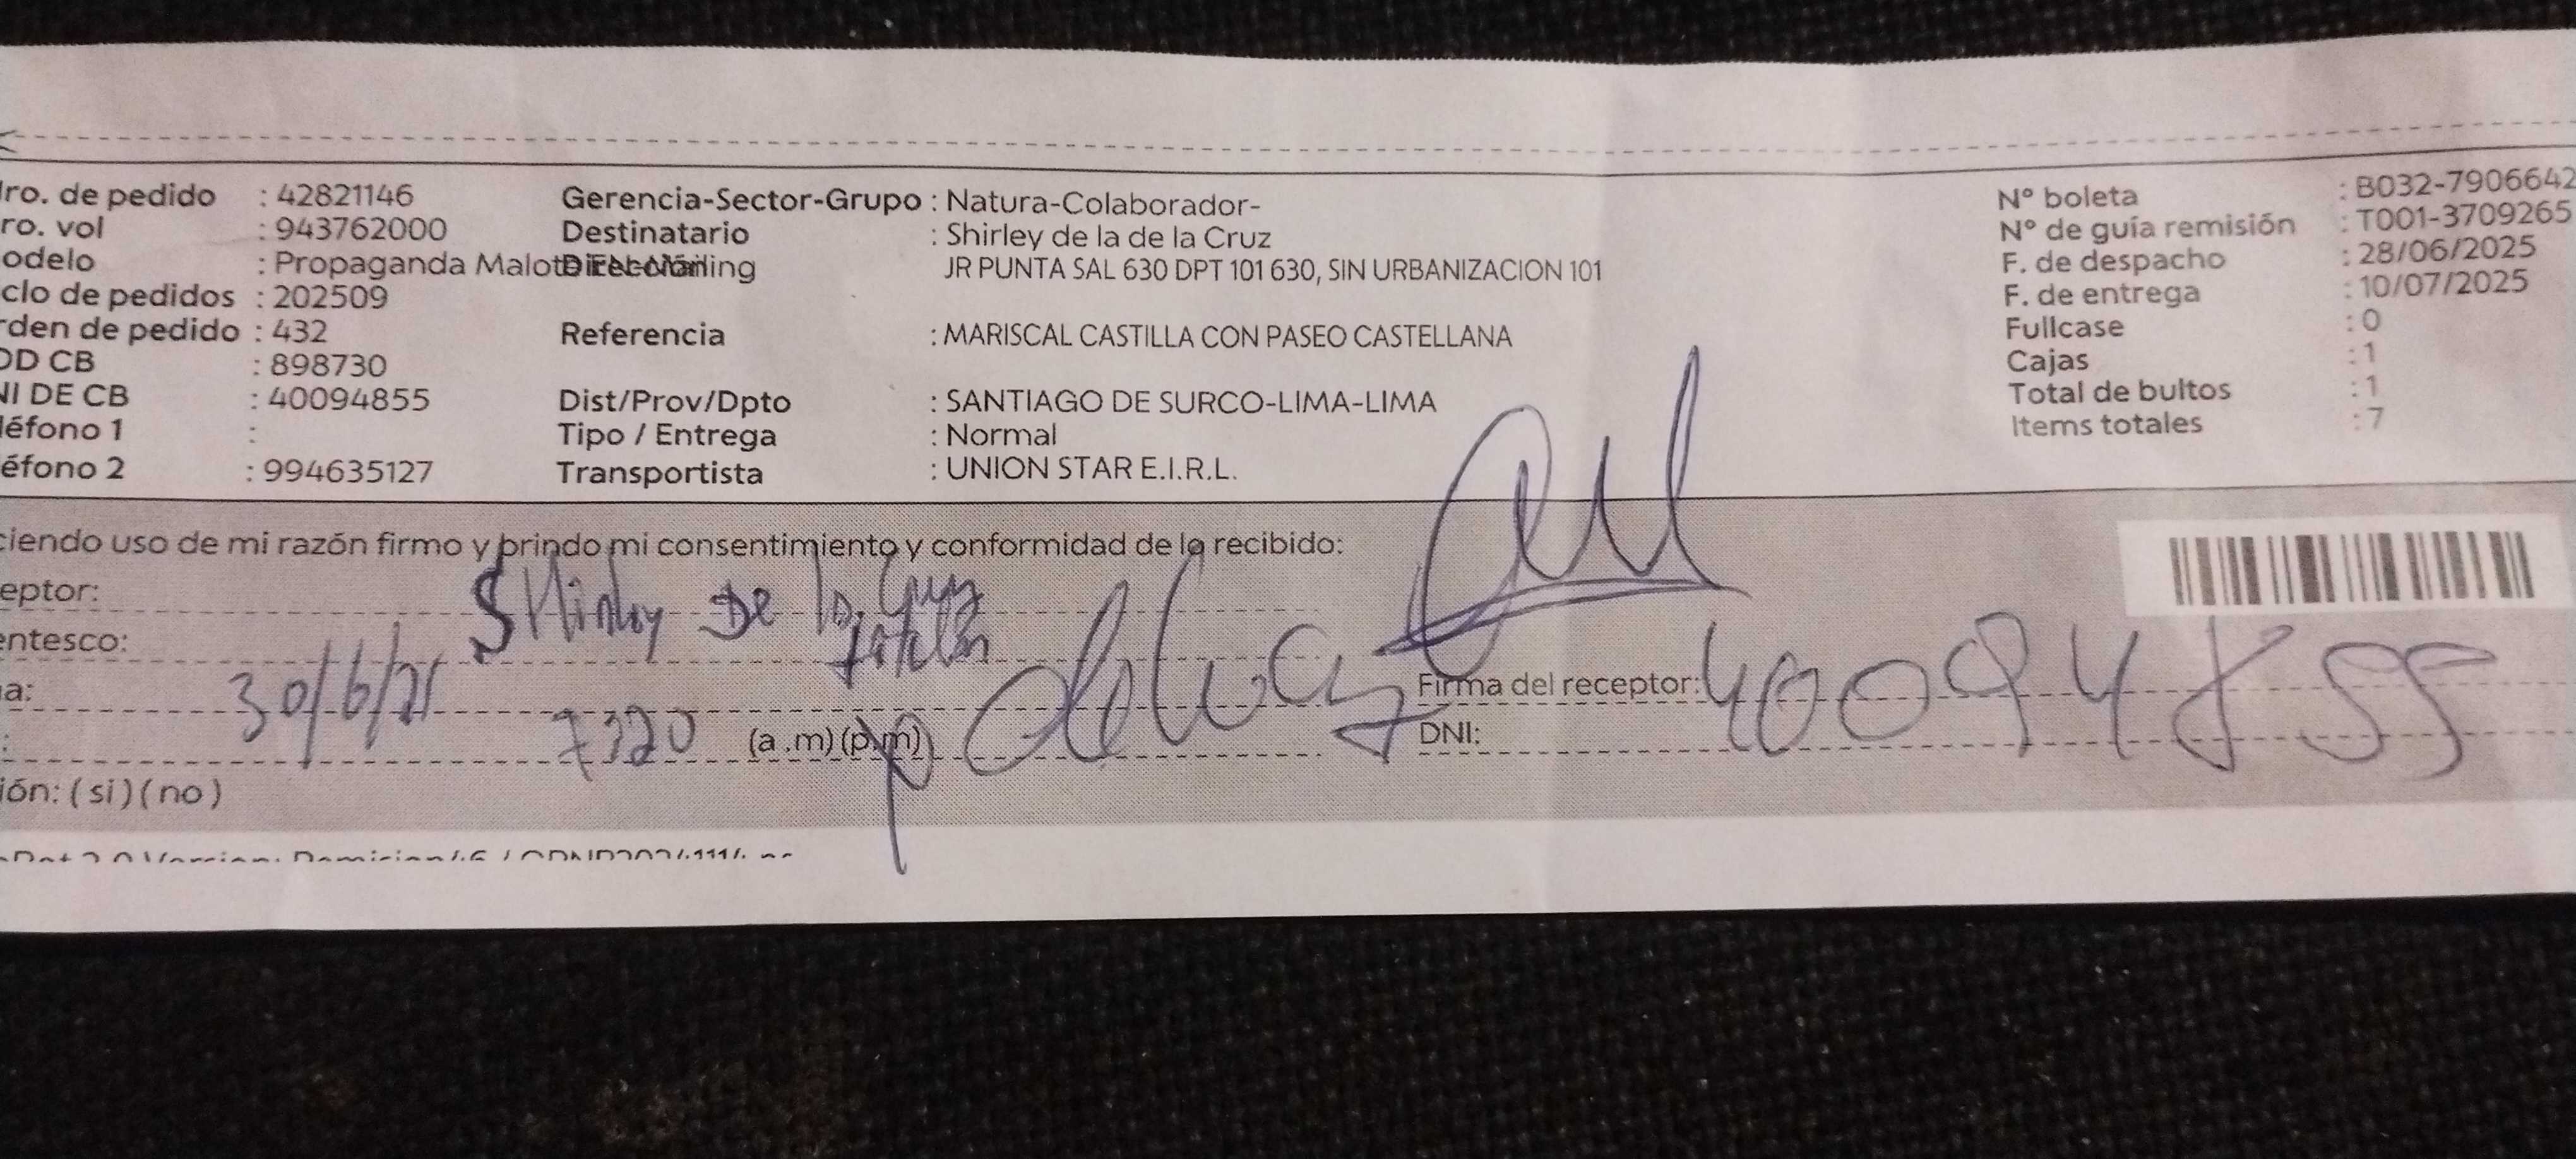 ro. de pedido : 42821146
ro. vol : 943762000
odelo : Propaganda
clo de pedidos : 202509
rden de pedido : 432
OD CB : 898730
NI DE CB : 40094855
léfono 1 :
éfono 2 : 994635127
Gerencia-Sector-Grupo : Natura-Colaborador-
Destinatario : Shirley de la de la Cruz
Dirección JR PUNTA SAL 630 DPT 101 630, SIN URBANIZACION 101
Referencia : MARISCAL CASTILLA CON PASEO CASTELLANA
Dist/Prov/Dpto : SANTIAGO DE SURCO-LIMA-LIMA
Tipo / Entrega : Normal
Transportista : UNION STAR E.I.R.L.
N° boleta : B032-7906642
N° de guía remisión : T001-3709265
F. de despacho : 28/06/2025
F. de entrega : 10/07/2025
Fullcase : 0
Cajas : 1
Total de bultos : 1
Items totales : 7
ciendo uso de mi razón firmo y brindo mi consentimiento y conformidad de lo recibido:
eptor: Shirley De la Cruz
entesco:
a: 30/6/25
: 7:20 (a .m) (p.m)
Firma del receptor:
DNI: 40094855
ión: ( si ) ( no )